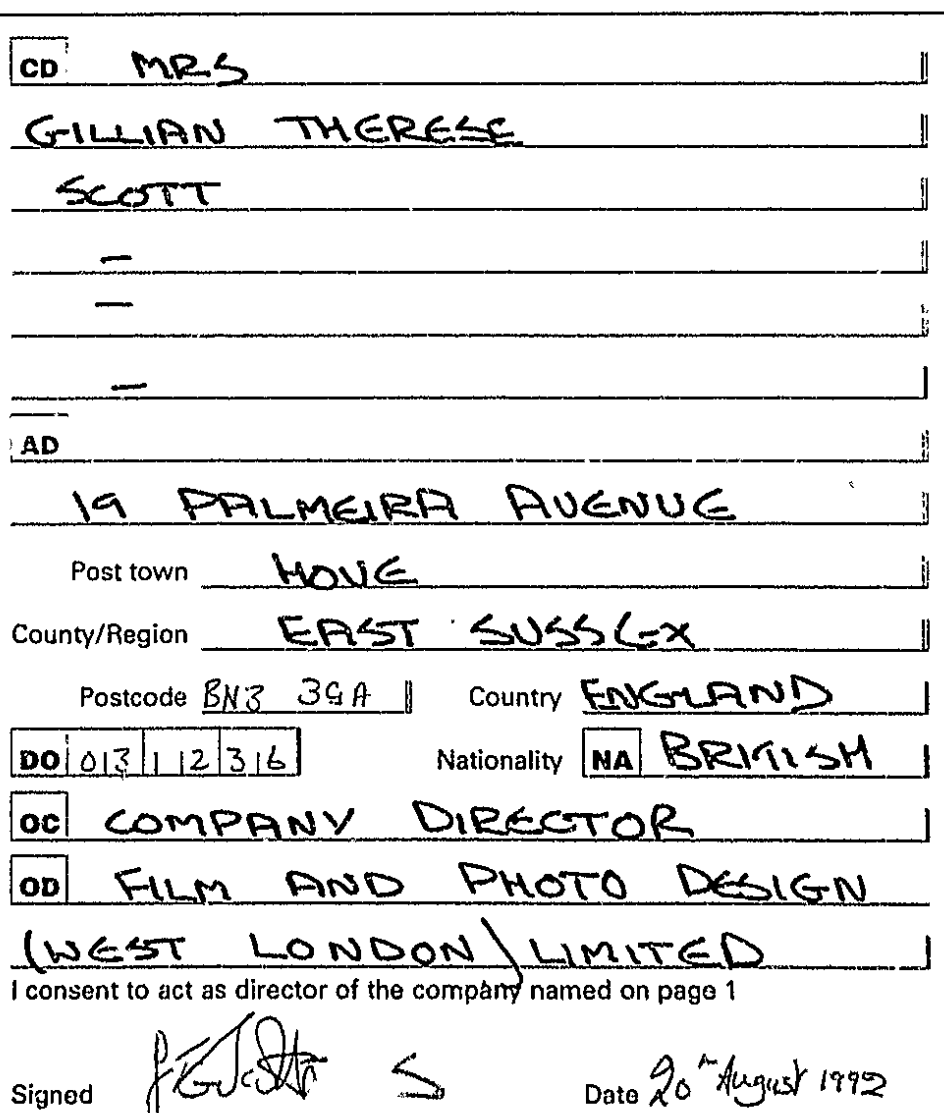 CD MRS
GILLIAN THERESE
SCOTT
—
—
—
AD
19 PALMEIRA AVENUE
Post town HOVE
County/Region EAST SUSSEX
Postcode BN3 3GA Country ENGLAND
DO 03 12 36 Nationality NA BRITISH
OC COMPANY DIRECTOR
OD FILM AND PHOTO DESIGN
(WEST LONDON) LIMITED
I consent to act as director of the company named on page 1
Signed Date 20th August 1992